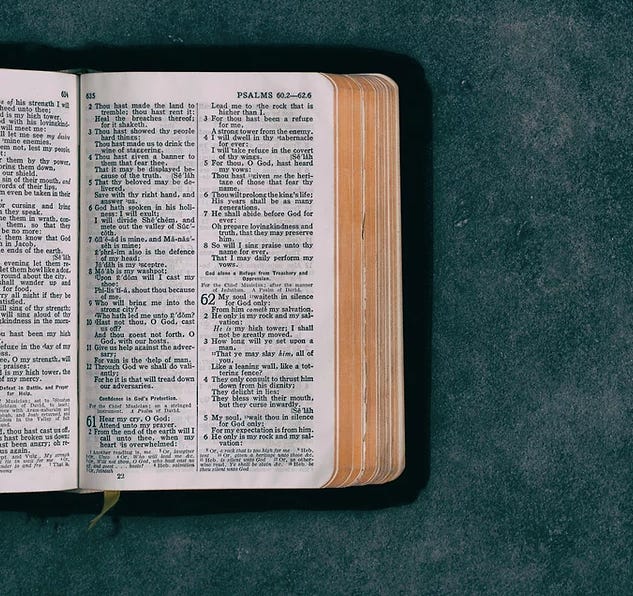 614
of his strength I will
heed unto thee;
d is my high tower,
od with his lovingkind-
will meet me:
ill let me see my desire
mine enemies.
them not, lest my people
er them by thy power,
bring them down,
our shield.
sin of their mouth, and
words of their lips,
even be taken in their
or cursing and lying
they speak.
me them in wrath, con-
them, so that they
be no more:
t them know that God
in Jacob,
e ends of the earth.
evening let them re-
let them howl like a dog,
round about the city.
shall wander up and
for food,
rry all night if they be
satisfied.
will sing of thy strength;
will sing aloud of thy
kindness in the morn-
hou hast been my high
refuge in the day of my
ss.
ee, O my strength, will
praises:
d is my high tower, the
of my mercy.
Defeat in Battle, and Prayer
for Help.
d, thou hast cast us off,
hast broken us down;
hast been angry; oh re-
us again.
635
PSALMS 60.2—62.6
2 Thou hast made the land to
tremble; thou hast rent it:
Heal the breaches thereof;
for it shaketh.
3 Thou hast showed thy people
hard things:
Thou hast made us to drink the
wine of staggering.
4 Thou hast given a banner to
them that fear thee,
That it may be displayed be-
cause of the truth. (Sē´lăh
5 That thy beloved may be de-
livered,
Save with thy right hand, and
answer us.
6 God hath spoken in his holi-
ness: I will exult;
I will divide Shē´chĕm, and
mete out the valley of Sŭc´-
cŏth.
7 Gĭl´ē-ăd is mine, and Mă-năs´-
sĕh is mine;
Ē´phră-ĭm also is the defence
of my head;
Jū´dăh is my sceptre.
8 Mō´ăb is my washpot;
Upon Ē´dŏm will I cast my
shoe:
Phĭ-lĭs´tĭ-ă, shout thou because
of me.
9 Who will bring me into the
strong city?
Who hath led me unto Ē´dŏm?
10 Hast not thou, O God, cast
us off?
And thou goest not forth, O
God, with our hosts.
11 Give us help against the adver-
sary;
For vain is the help of man.
12 Through God we shall do vali-
antly;
For he it is that will tread down
our adversaries.
Confidence in God's Protection.
For the Chief Musician; on a stringed
instrument. A Psalm of David.
61 Hear my cry, O God;
Attend unto my prayer.
2 From the end of the earth will I
call unto thee, when my
heart is overwhelmed:
22
Lead me to the rock that is
higher than I.
3 For thou hast been a refuge
for me,
A strong tower from the enemy.
4 I will dwell in thy tabernacle
for ever:
I will take refuge in the covert
of thy wings. (Sē´lăh
5 For thou, O God, hast heard
my vows:
Thou hast given me the heri-
tage of those that fear thy
name.
6 Thou wilt prolong the king's life;
His years shall be as many
generations.
7 He shall abide before God for
ever:
Oh prepare lovingkindness and
truth, that they may preserve
him.
8 So will I sing praise unto thy
name for ever,
That I may daily perform my
vows.
God alone a Refuge from Treachery and
Oppression.
For the Chief Musician; after the manner
of Jeduthun. A Psalm of David.
62 My soul waiteth in silence
for God only:
From him cometh my salvation.
2 He only is my rock and my sal-
vation:
He is my high tower; I shall
not be greatly moved.
3 How long will ye set upon a
man,
That ye may slay him, all of
you,
Like a leaning wall, like a tot-
tering fence?
4 They only consult to thrust him
down from his dignity;
They delight in lies;
They bless with their mouth,
but they curse inwardly.
(Sē´lăh
5 My soul, wait thou in silence
for God only;
For my expectation is from him.
6 He only is my rock and my sal-
vation: